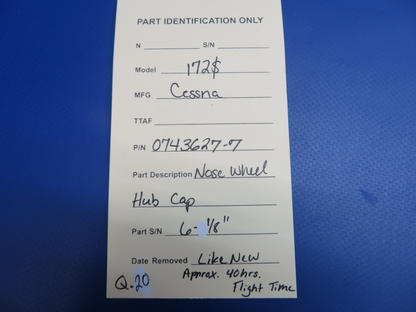 PART IDENTIFICATION ONLY
N S/N
Model 172$
MFG Cessna
TTAF
P/N 0743627-7
Part Description Nose Wheel
Hub Cap
Part S/N 6-1/8"
Date Removed Like New
Approx. 40hrs.
Flight Time
Q.20